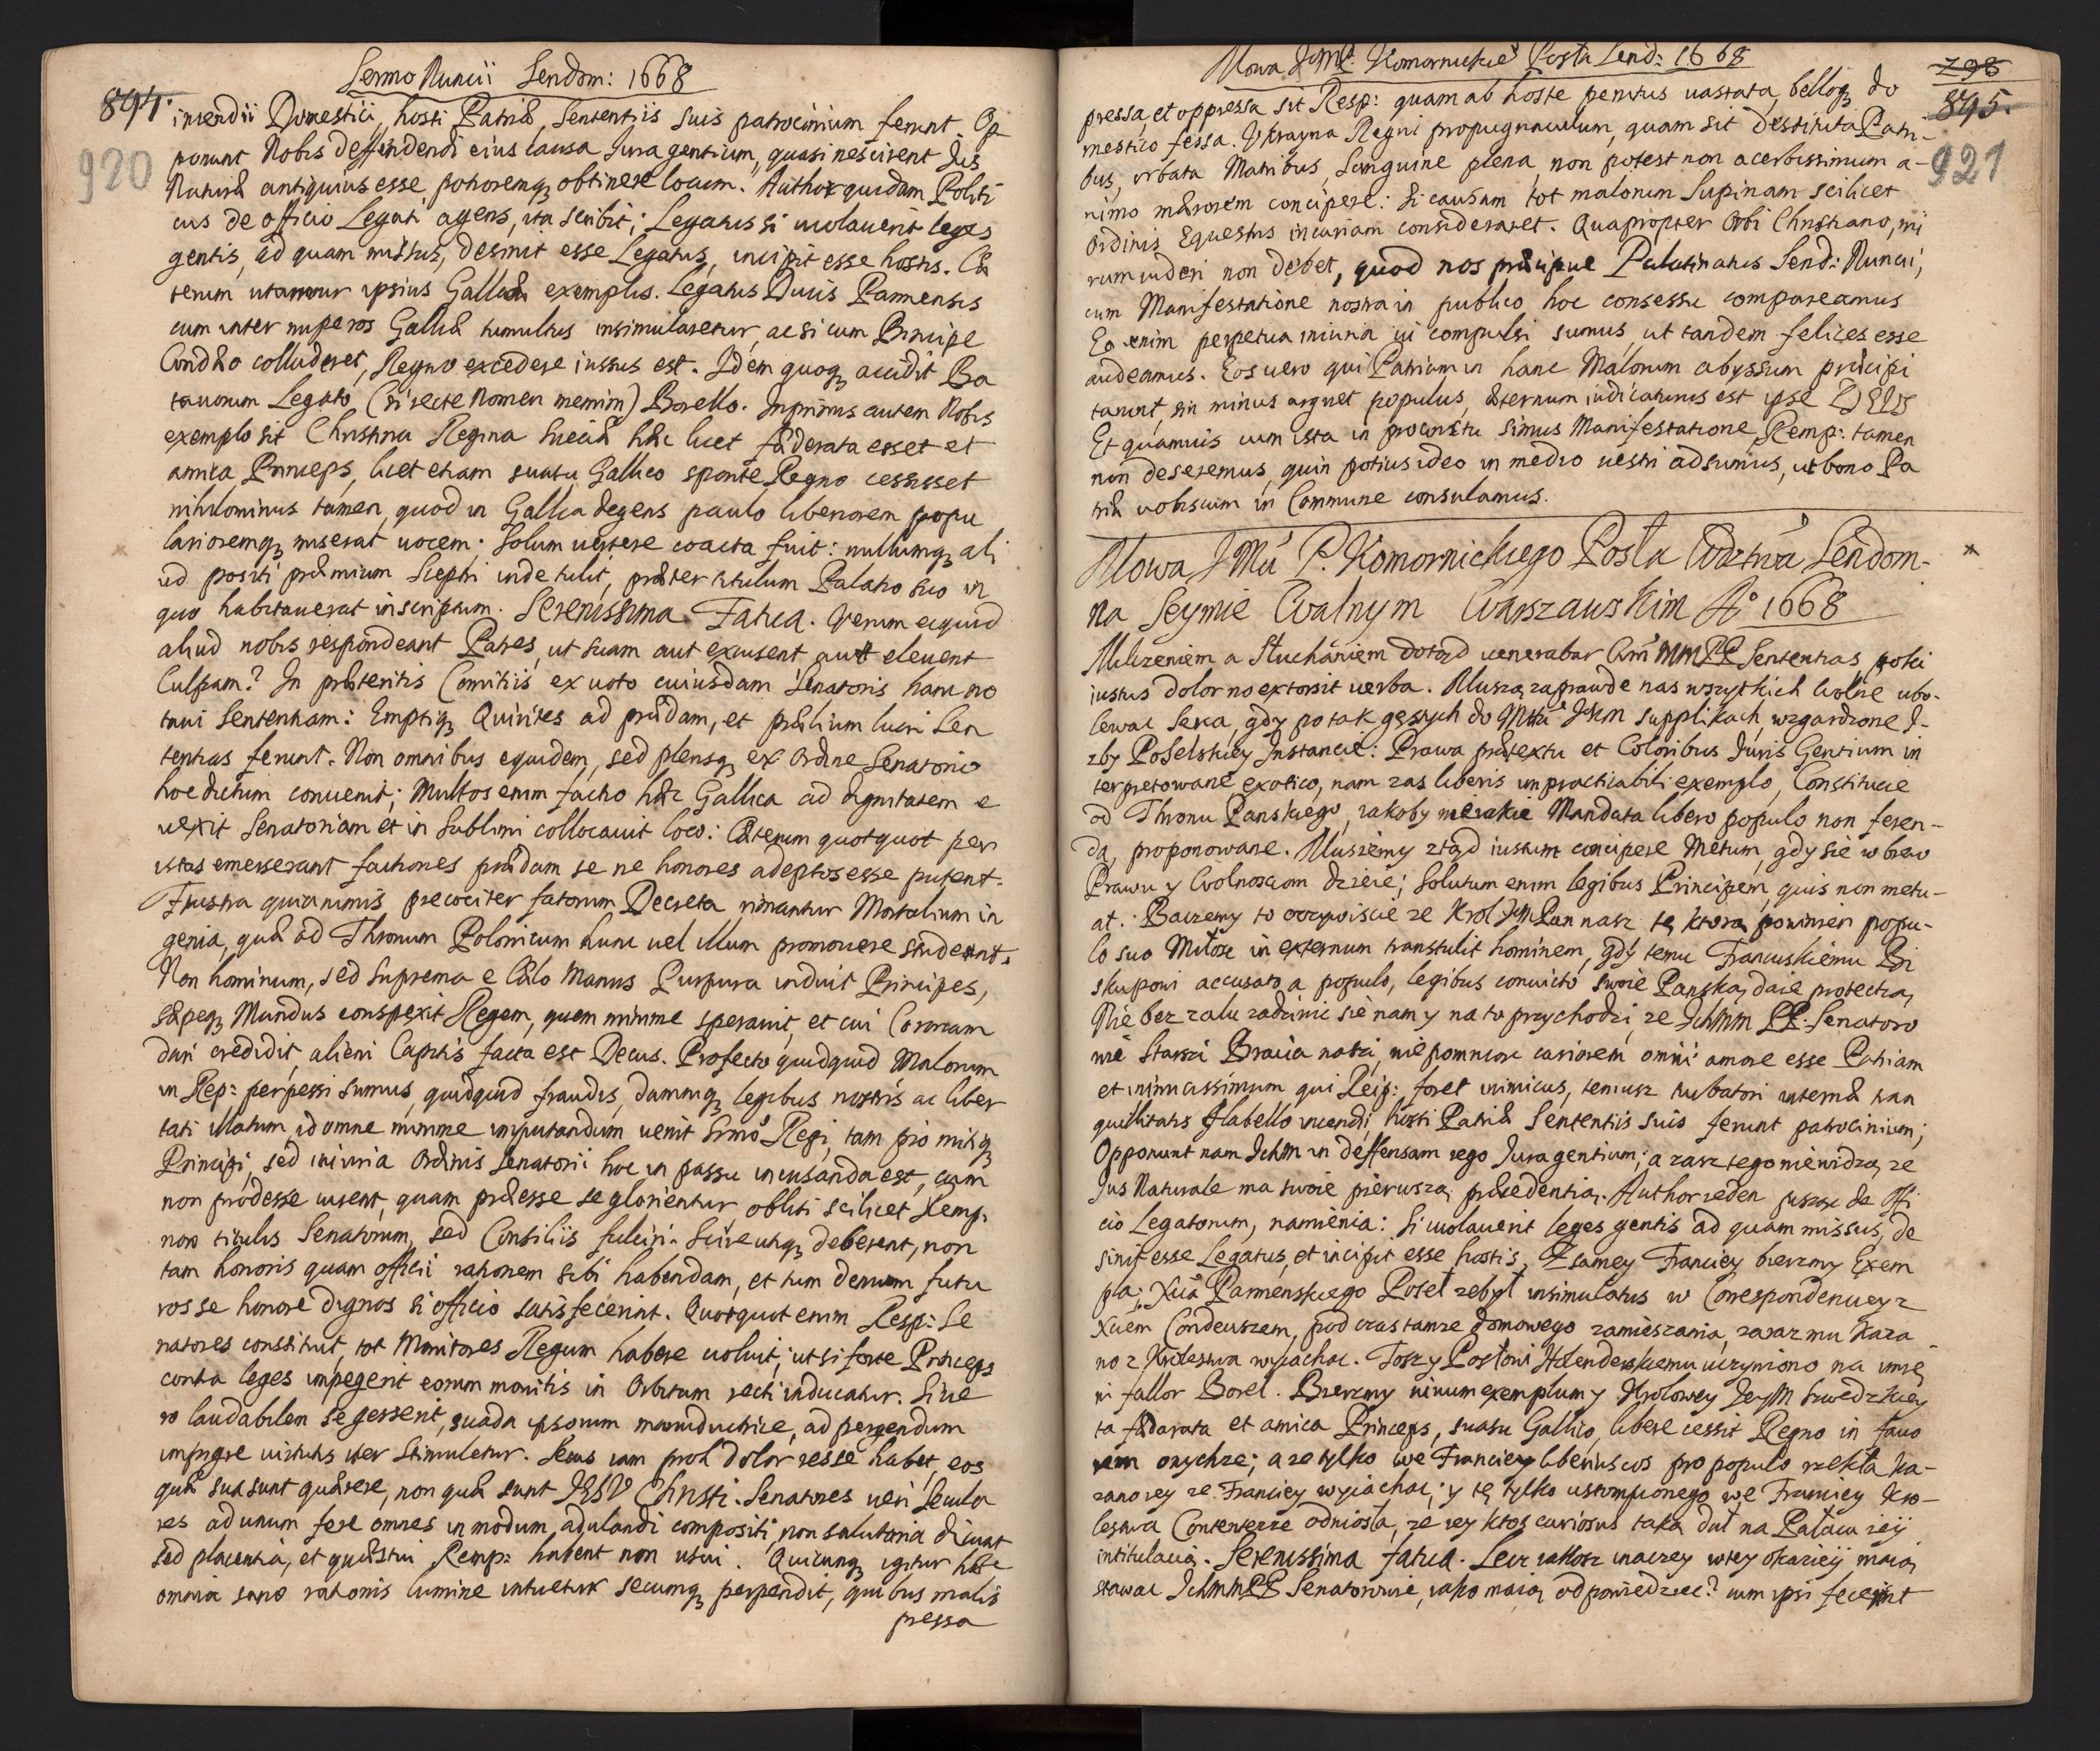 Sermo Nuncii Sendom: 1668
894.
920
incendii Domestici, hosti Patriæ, Sententiis suis patrocinium ferunt. Op
ponunt Nobis deffendendi eius causa Jura gentium, quasi nescirent Jus
Naturæ antiquius esse potioremq obtinere locum. Author quidam Politi
cus de officio Legati agens, ita scribit; Legatus si violauerit leges
gentis, ad quam mittitur, desinit esse Legatus, incipit esse hostis. Cæ
terum utamur ipsius Galliæ exemplis. Legatus Ducis Parmensis
cum inter nuperos Galliæ tumultus insimularetur, ac si cum Principe
Condæo colluderet, Regno excedere iussus est. Idem quoq accidit Ba
tauorum Legato (si recte Nomen memini) Borello. Inprimis autem Nobis
exemplo sit Christina Regina Sueciæ hæc licet fæderata esset et
amica Princeps, licet etiam suasu Gallico sponte Regno cessisset
nihilominus tamen, quod in Gallia degens paulo liberiorem popu
larioremq miserat uocem: Solum uertere coacta fuit: nullumq ali
ud positi præmium Sceptri inde tulit, præter titulum Palatio suo in
quo habitauerat inscriptum. Serenissima Fatua. Verum ecquid
aliud nobis respondeant Patres, ut suam aut excusent aut eleuent
Culpam? In præteritis Comitiis ex uoto cuiusdam Senatoris hanc no
taui Sententiam: Emptiq Quirites ad prædam, et prælium lucri Sen
tentias ferunt. Non omnibus equidem, sed plerisq ex Ordine Senatorio
hoc dictum conuenit; Multos enim factio hæc Gallica ad dignitatem e
uexit Senatoriam et in Sublimi collocauit loco: Cæterum quotquot per
istas emerserant factiones prædam se ne honores adeptos esse putent.
Frustra quia nimis precociter fatorum Decreta rimantur Mortalium in
genia, quæ ad Thronum Polonicum hunc uel illum promouere student.
Non hominum, sed Suprema e Cælo Manus Purpura induit Principes,
Sæpeq Mundus conspexit Regem, quem minime sperauit, et cui Coronam
dari credidit, alieni Capitis facta est Decus. Profecto quidquid Malorum
in Rep: perpessi sumus, quidquid fraudis, damniq legibus nostris ac liber
tati illatum, id omne minime imputandum uenit Srmo Regi, tam pio mitiq
Principi, sed iniuria Ordinis Senatorii hoc in passu incusanda est, cum
non prodesse curent, quam præesse se glorientur obliti scilicet Remp:
non titulis Senatorum, sed Consiliis fulciri. Scire utiq deberent, non
tam honoris quam officii rationem sibi habendam, et tum demum futu
ros se honore dignos si officio satisfecerint. Quotquot enim Resp: Se
natores constituit, tot Monitores Regum habere uoluit, ut si forte Princeps
contra leges impegerit eorum monitis in Orbitam recti inducatur. Si ue
ro laudabilem se gesserit, suada ipsorum manuductrice, ad pergendum
impigre uirtutis iter Stimuletur. Secus iam proh dolor resse habet, eos
quæ sua sunt quærere, non quæ sunt JESU Christi. Senatores ueri Secula
res ad unum fere omnes in modum adulandi compositi, non salutaria dicunt
sed placentia, et quæstui Remp: habent non usui. Quicunq igitur hæc
omnia sano rationis lumine intuetur secumq perpendit, quibus malis
pressa
Mowa JMP. Komornickie° Posła Send: 1668
298
895.
921
pressa, et oppressa sit Resp: quam ab hoste penitus uastata, belloq do
mestico fessa. Vkrayna Regni propugnaculum, quam sit destituta Patri-
bus, orbata Matribus, Sanguine plena, non potest non acerbissimum a-
nimo mærorem concipere: Si causam tot malorum Supinam scilicet
Ordinis Equestris incuriam consideraret. Quapropter Orbi Christiano, mi
rum uideri non debet, quod nos præcipue Palatinatus Send: Nuncii,
cum Manifestatione nostra in publico hoc consessu compareamus
Ea enim perpetua iniuria ui compulsi sumus, ut tandem felices esse
audeamus. Eos uero qui Patriam in hanc Malorum abyssum præcipi
tarunt, sin minus arguet populus, æternum iudicaturus est ipse DEUS
Et quamuis cum ista in procinctu simus Manifestatione, Remp: tamen
non deseremus, quin potius ideo in medio uestri adsumus, ut bono Pa
triæ uobiscum in Commune consulamus.
Mowa JMci P. Komornickiego Posła Wdztwa Sendom-
na Seymie Walnym Warszawskim A° 1668
Milczeniem a Słuchaniem dotąd uenerabar WmMMPP Sententias, poki
iustus dolor no extorsit uerba. Muszą zaprawde nas wszytkich Wolne ubo-
lewac Serca, gdy po tak gęstych do Mtu JKm supplikach, wzgardzone I-
zby Poselskiey Instancie: Prawa prætextu et Coloribus Juris Gentium in
terpretowane exotico, nam zas liberis impracticabili exemplo, Constitucie
od Thronu Panskiego, iakoby nieiakie Mandata libero populo non feren-
da, proponowane. Musiemy ztąd iustum concipere Metum, gdy sie wbrew
Prawu y Wolnosciom dzieie; Solutum enim legibus Principem, quis non metu-
at. Baczemy to oczywiscie ze Krol JM Pan nasz tę ktorą powinien popu-
lo suo Miłosc in externum transtulit hominem, gdy temu Francuskiemu Bi
skupowi accusato a populo, legibus conuicto swoie Panską daie protectią
Nie bez zalu zadziwic sie nam y na to przychodzi, ze IchMm PP: Senatoro
wie Starsi Bracia nasi, niepomniac cariorem omni amore esse Patriam
et inimicissimum qui Reip: foret inimicus, temusz turbatori internæ tran
quillitatis flabello incendii, hosti Patriæ Sententiis suis ferunt patrocinium;
Opponunt nam IchM in deffensam iego Jura gentium; a zasz tego niewidzą, ze
Jus Naturale ma swoie pierwszą præcedentią. Author ieden pisząc de Offi
cio Legatorum, namienia: Si uiolauerit leges gentis ad quam missus, de
sinit esse Legatus, et incipit esse hostis, Z samey Franciey bierzmy Exem
pla; Xcia Parmenskiego Poseł zebył insimulatus w Correspondenciey z
Xciem Condeuszem, pod czas tamże domowego zamieszania, zaraz mu kaza
no z Krolestwa wyiachac. Tosz y Posłowi Holenderskiemu uczyniono na imię
ni fallor Borel. Bierzmy uiuum exemplum y Krolowey JeyM Szwedzkiey
ta fæderata et amica Princeps, suasu Gallico, libere cessit Regno in fauo
rem onychze; a ze tylko we Franciey liberius cos pro populo rzekła ka-
zano iey ze Franciey wyiachac, y tę tylko ustompionego we Franciey Kro-
lestwa Contentezze odniosła, ze iey ktos curiosus taką dał na Pałacu ieij
intitulacią. Serenissima fatua. Lecz iakosz inaczey w tey okazieij maią
stawac IchMMPP Senatorowie, iako maią odpowiedziec? cum ipsi fecerint